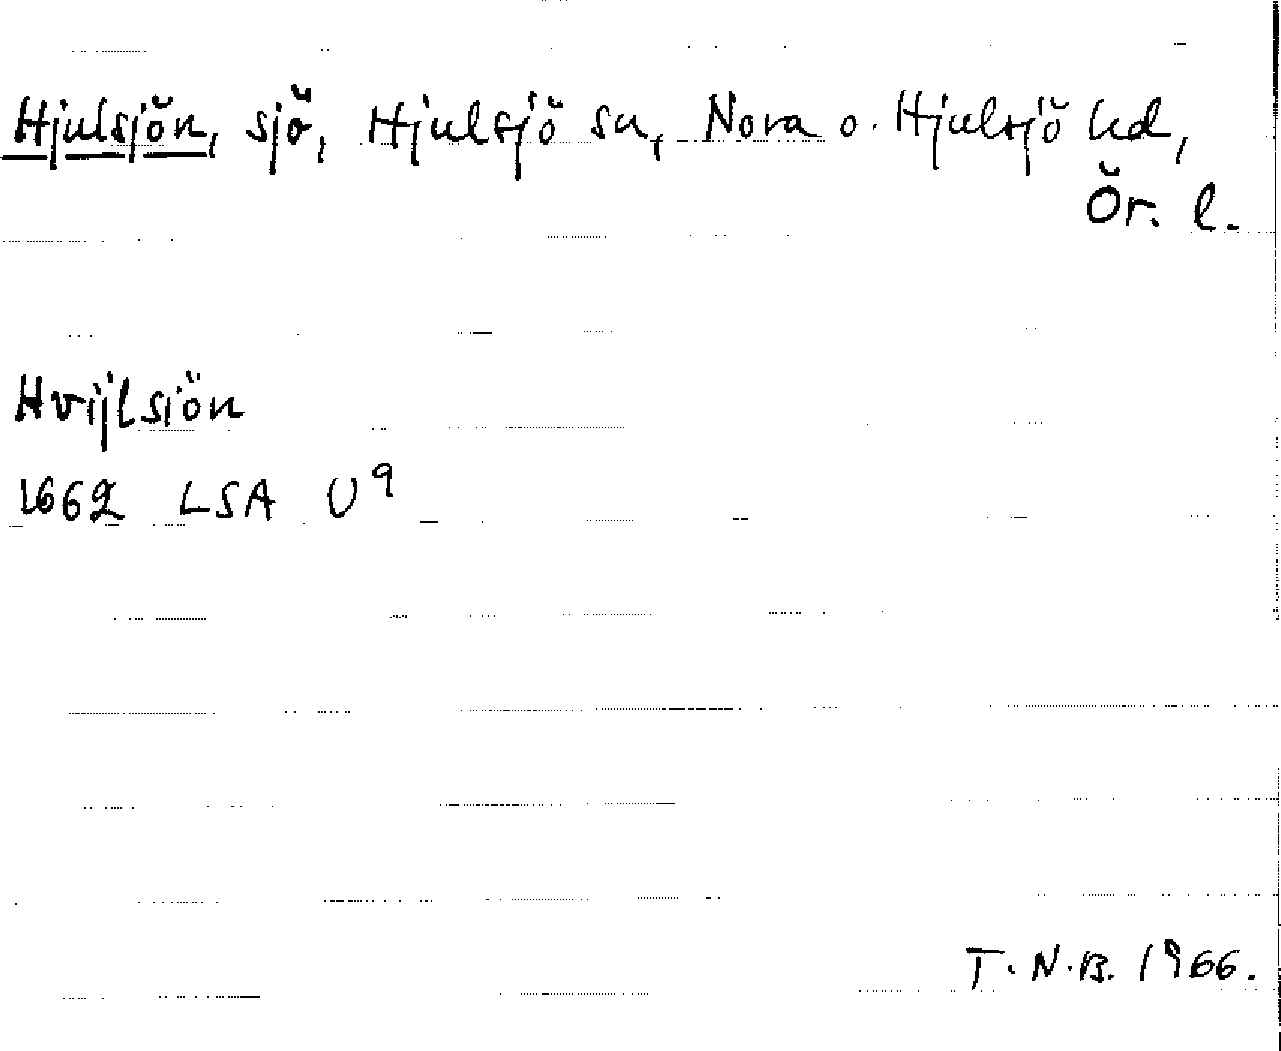 Hjulsjön, sjö, Hjulsjö sn, Nora o. Hjulsjö hd,
Ör. l.
Hvijlsiön
1662 LSA U9
T.N.B. 1966.